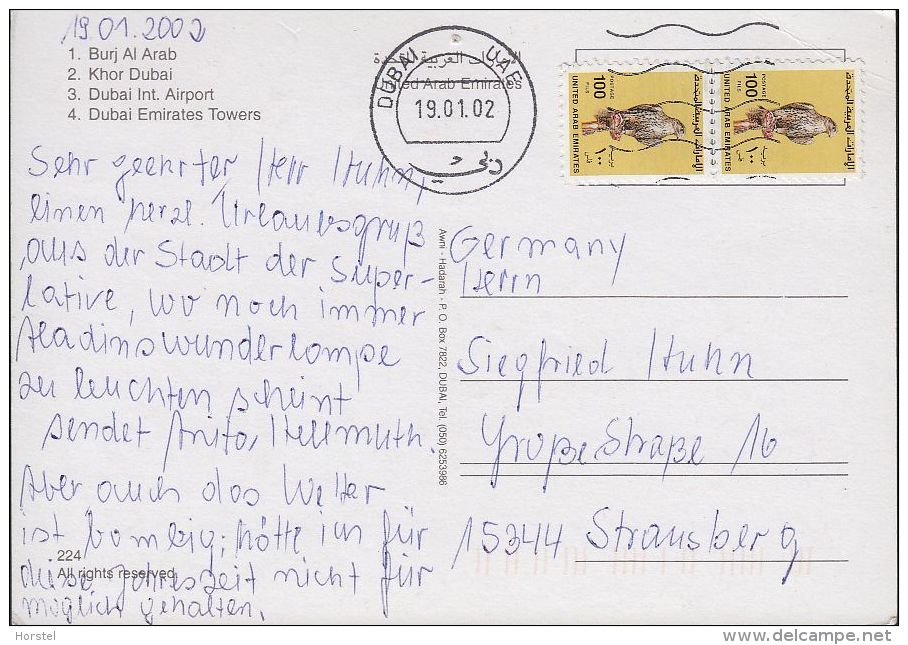 19.01.2002
1. Burj Al Arab
2. Khor Dubai
3. Dubai Int. Airport
4. Dubai Emirates Towers
United Arab Emirates
DUBAI U.A.E
19.01.02
دبي
100
POSTAGE
FILS
UNITED ARAB EMIRATES
100
POSTAGE
FILS
UNITED ARAB EMIRATES
Sehr geehrter Herr Huhn,
einen herzl. Urlaubsgruß
aus der Stadt der Super-
lative, wo noch immer
Aladins wunderlampe
zu leuchten scheint
sendet Anita, Hellmuth.
Aber auch das Wetter
ist bombig; hätte ich für
diese Jahreszeit nicht für
möglich gehalten.
Awni - Hadarah - P. O. Box 7822, DUBAI, Tel. (050) 6253986
Germany
Herrn
Siegfried Huhn
Große Straße 16
15344 Strausberg
224
All rights reserved
Horstel
www.delcampe.net